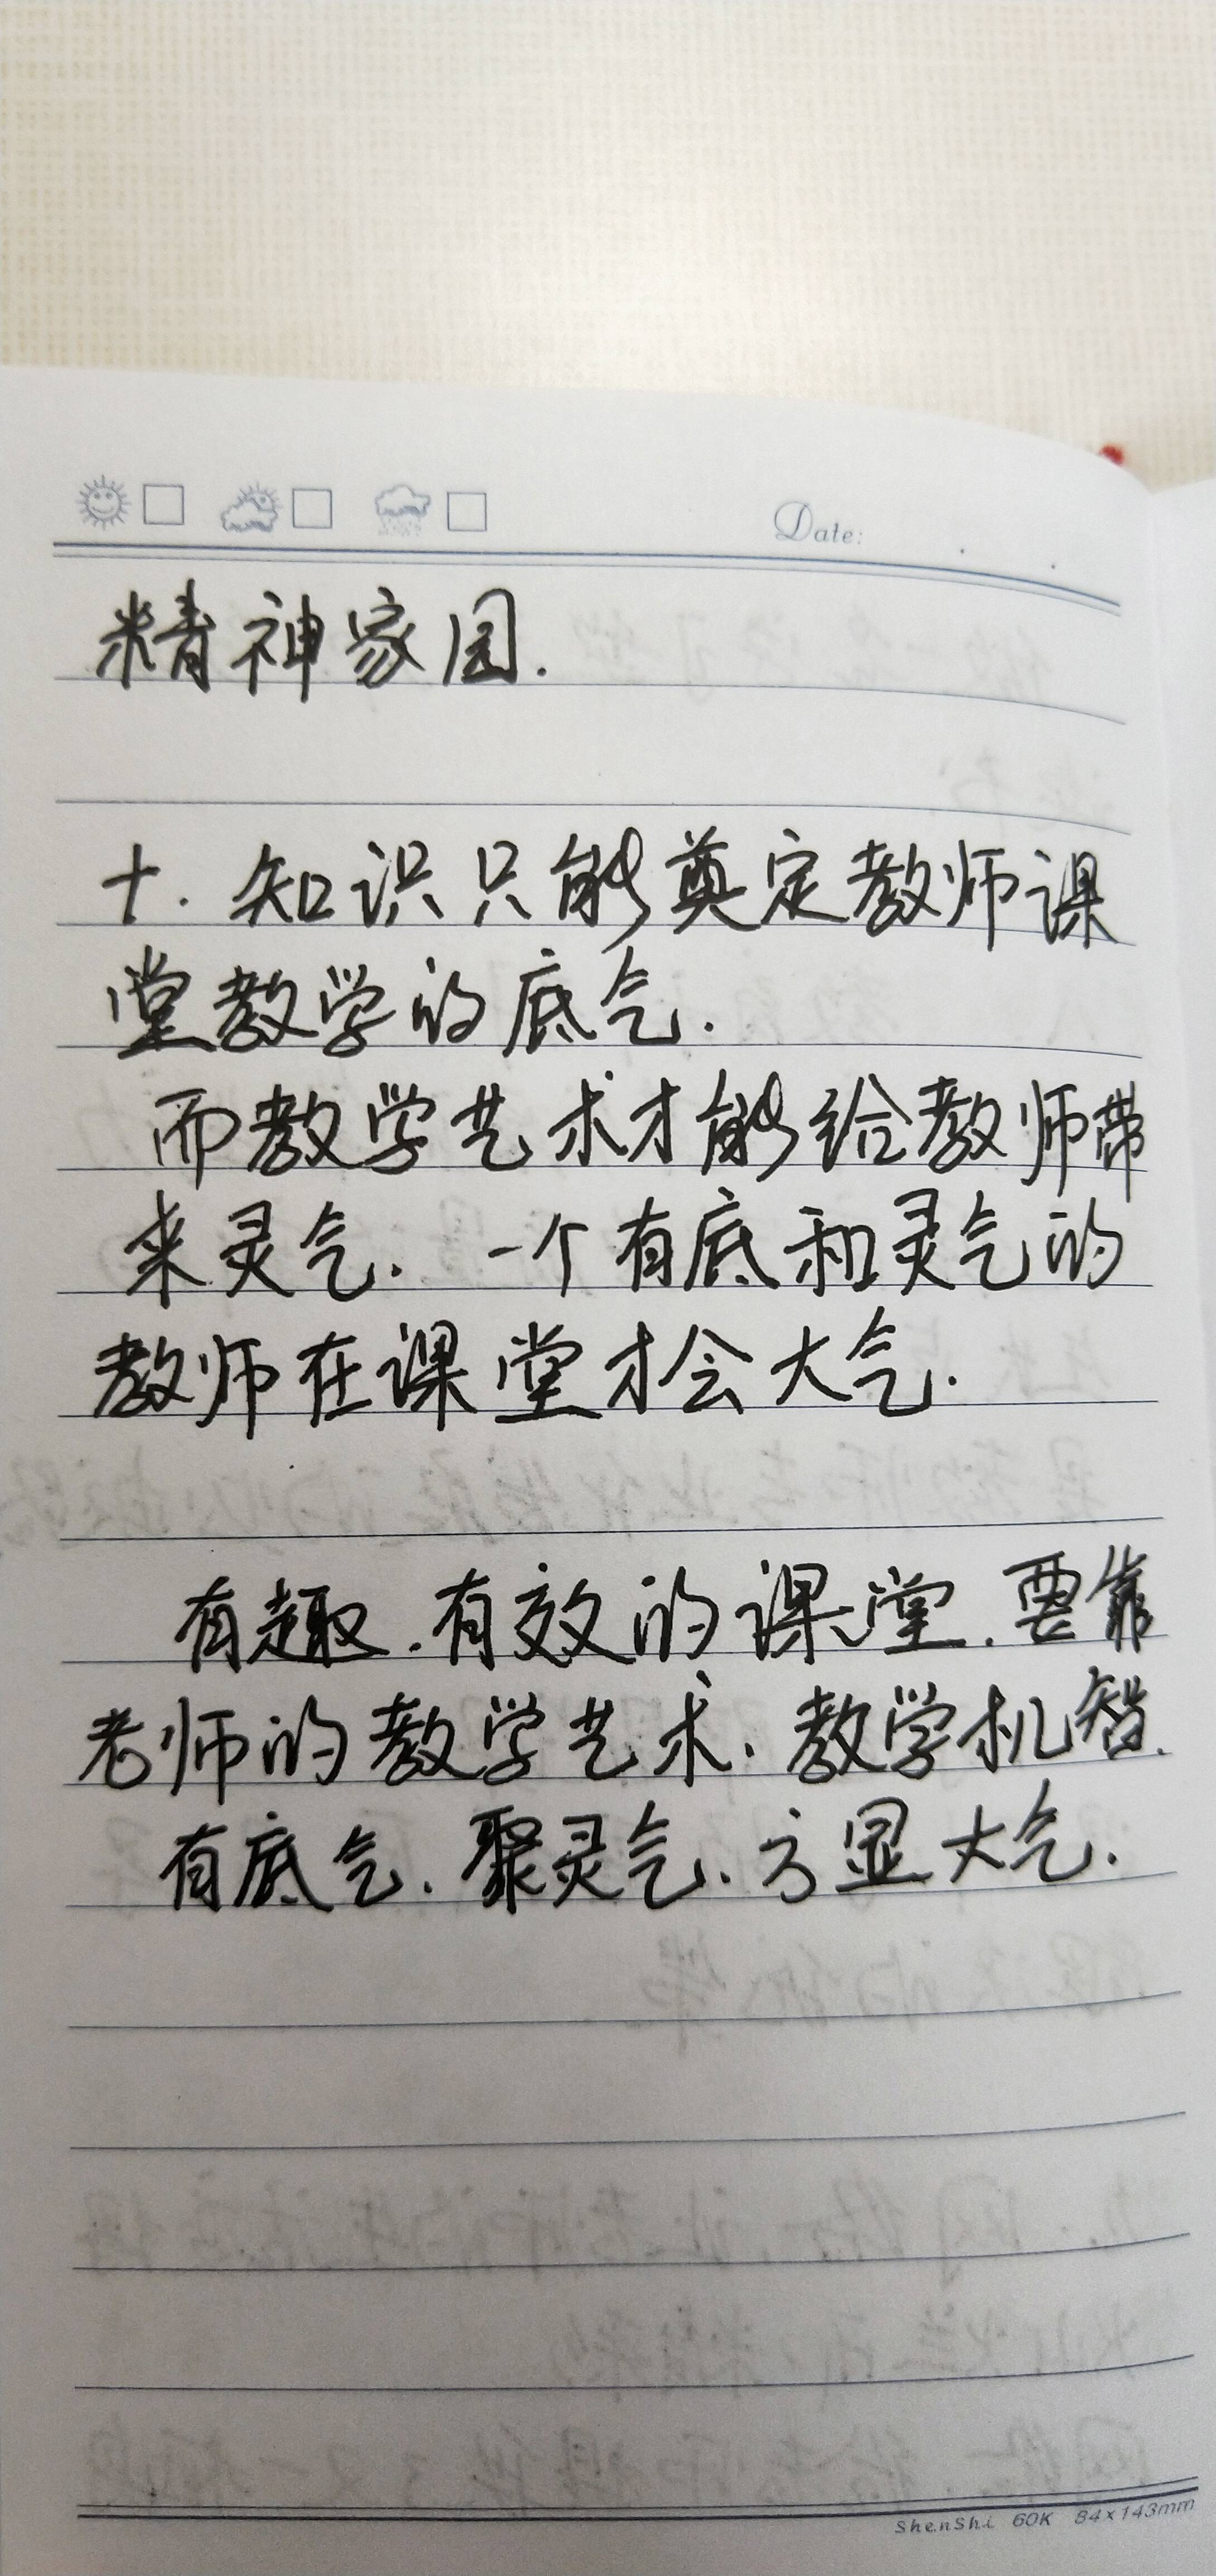 Date:
精神家园.
十.知识只能奠定教师课
堂教学的底气.
而教学艺术才能给教师带
来灵气.一个有底和灵气的
教师在课堂才会大气.
有趣.有效的课堂.要靠
老师的教学艺术.教学机智.
有底气.聚灵气.方显大气.
ShenShi 60K 84×143mm